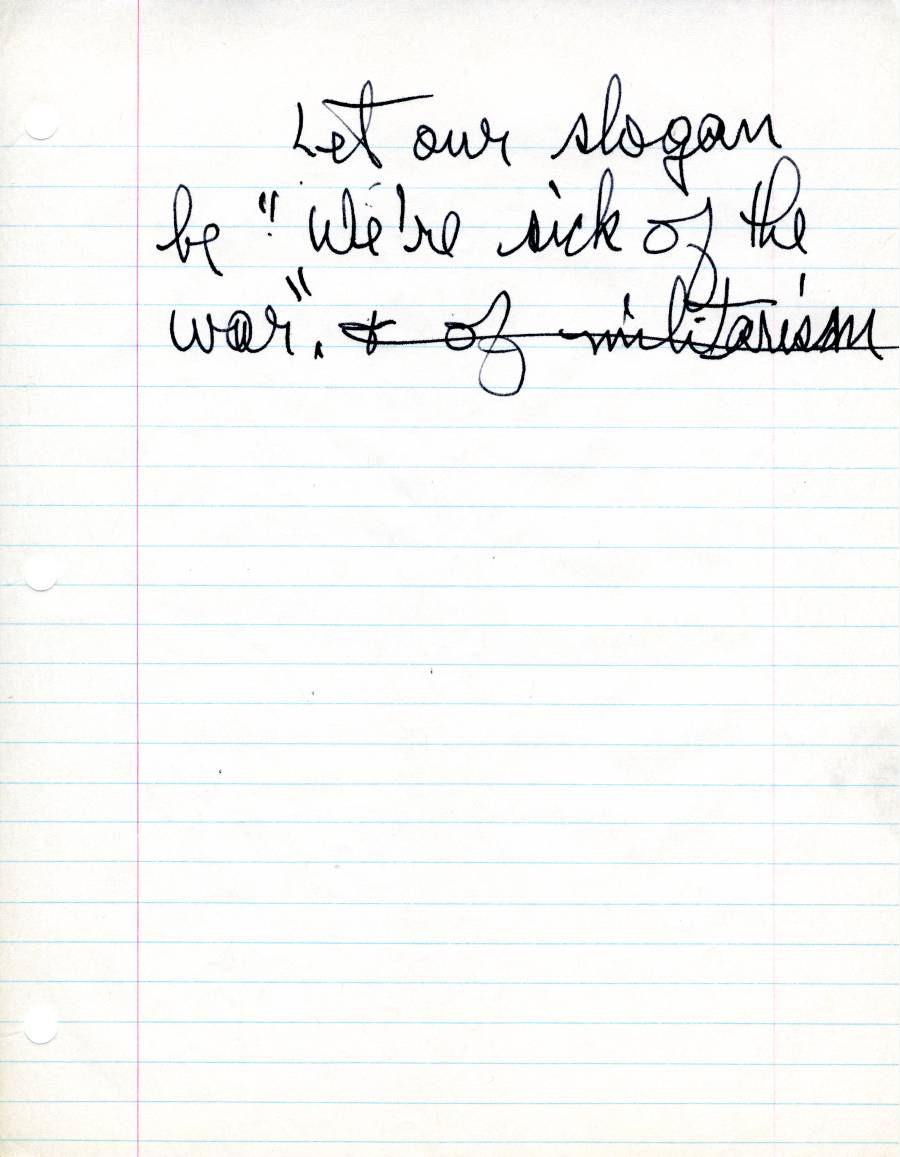 Let our slogan
be "We're sick of the
war". & of militarism